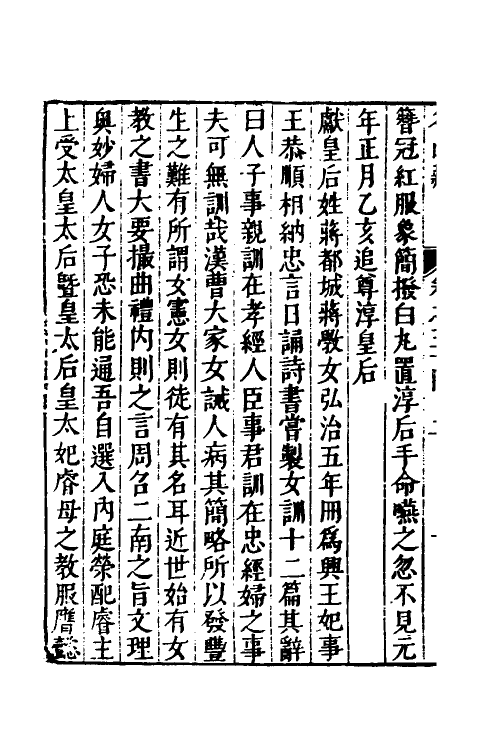 簪冠紅服象簡撥白丸置淳后手命嚥之忽不見元
年正月乙亥追尊淳皇后
獻皇后姓蔣都城蔣斆女弘治五年冊爲興王妃事
王恭順相納忠言日誦詩書嘗製女訓十二篇其辭
曰人子事親訓在孝經人臣事君訓在忠經婦之事
夫可無訓哉漢曹大家女誡人病其簡略所以發豐
生之難有所謂女憲女則徒有其名耳近世始有女
教之書大要撮曲禮內則之言周召二南之旨文理
奧妙婦人女子恐未能通吾自選入內庭榮配睿主
上受太皇太后曁皇太后皇太妃睿母之教服膺懿